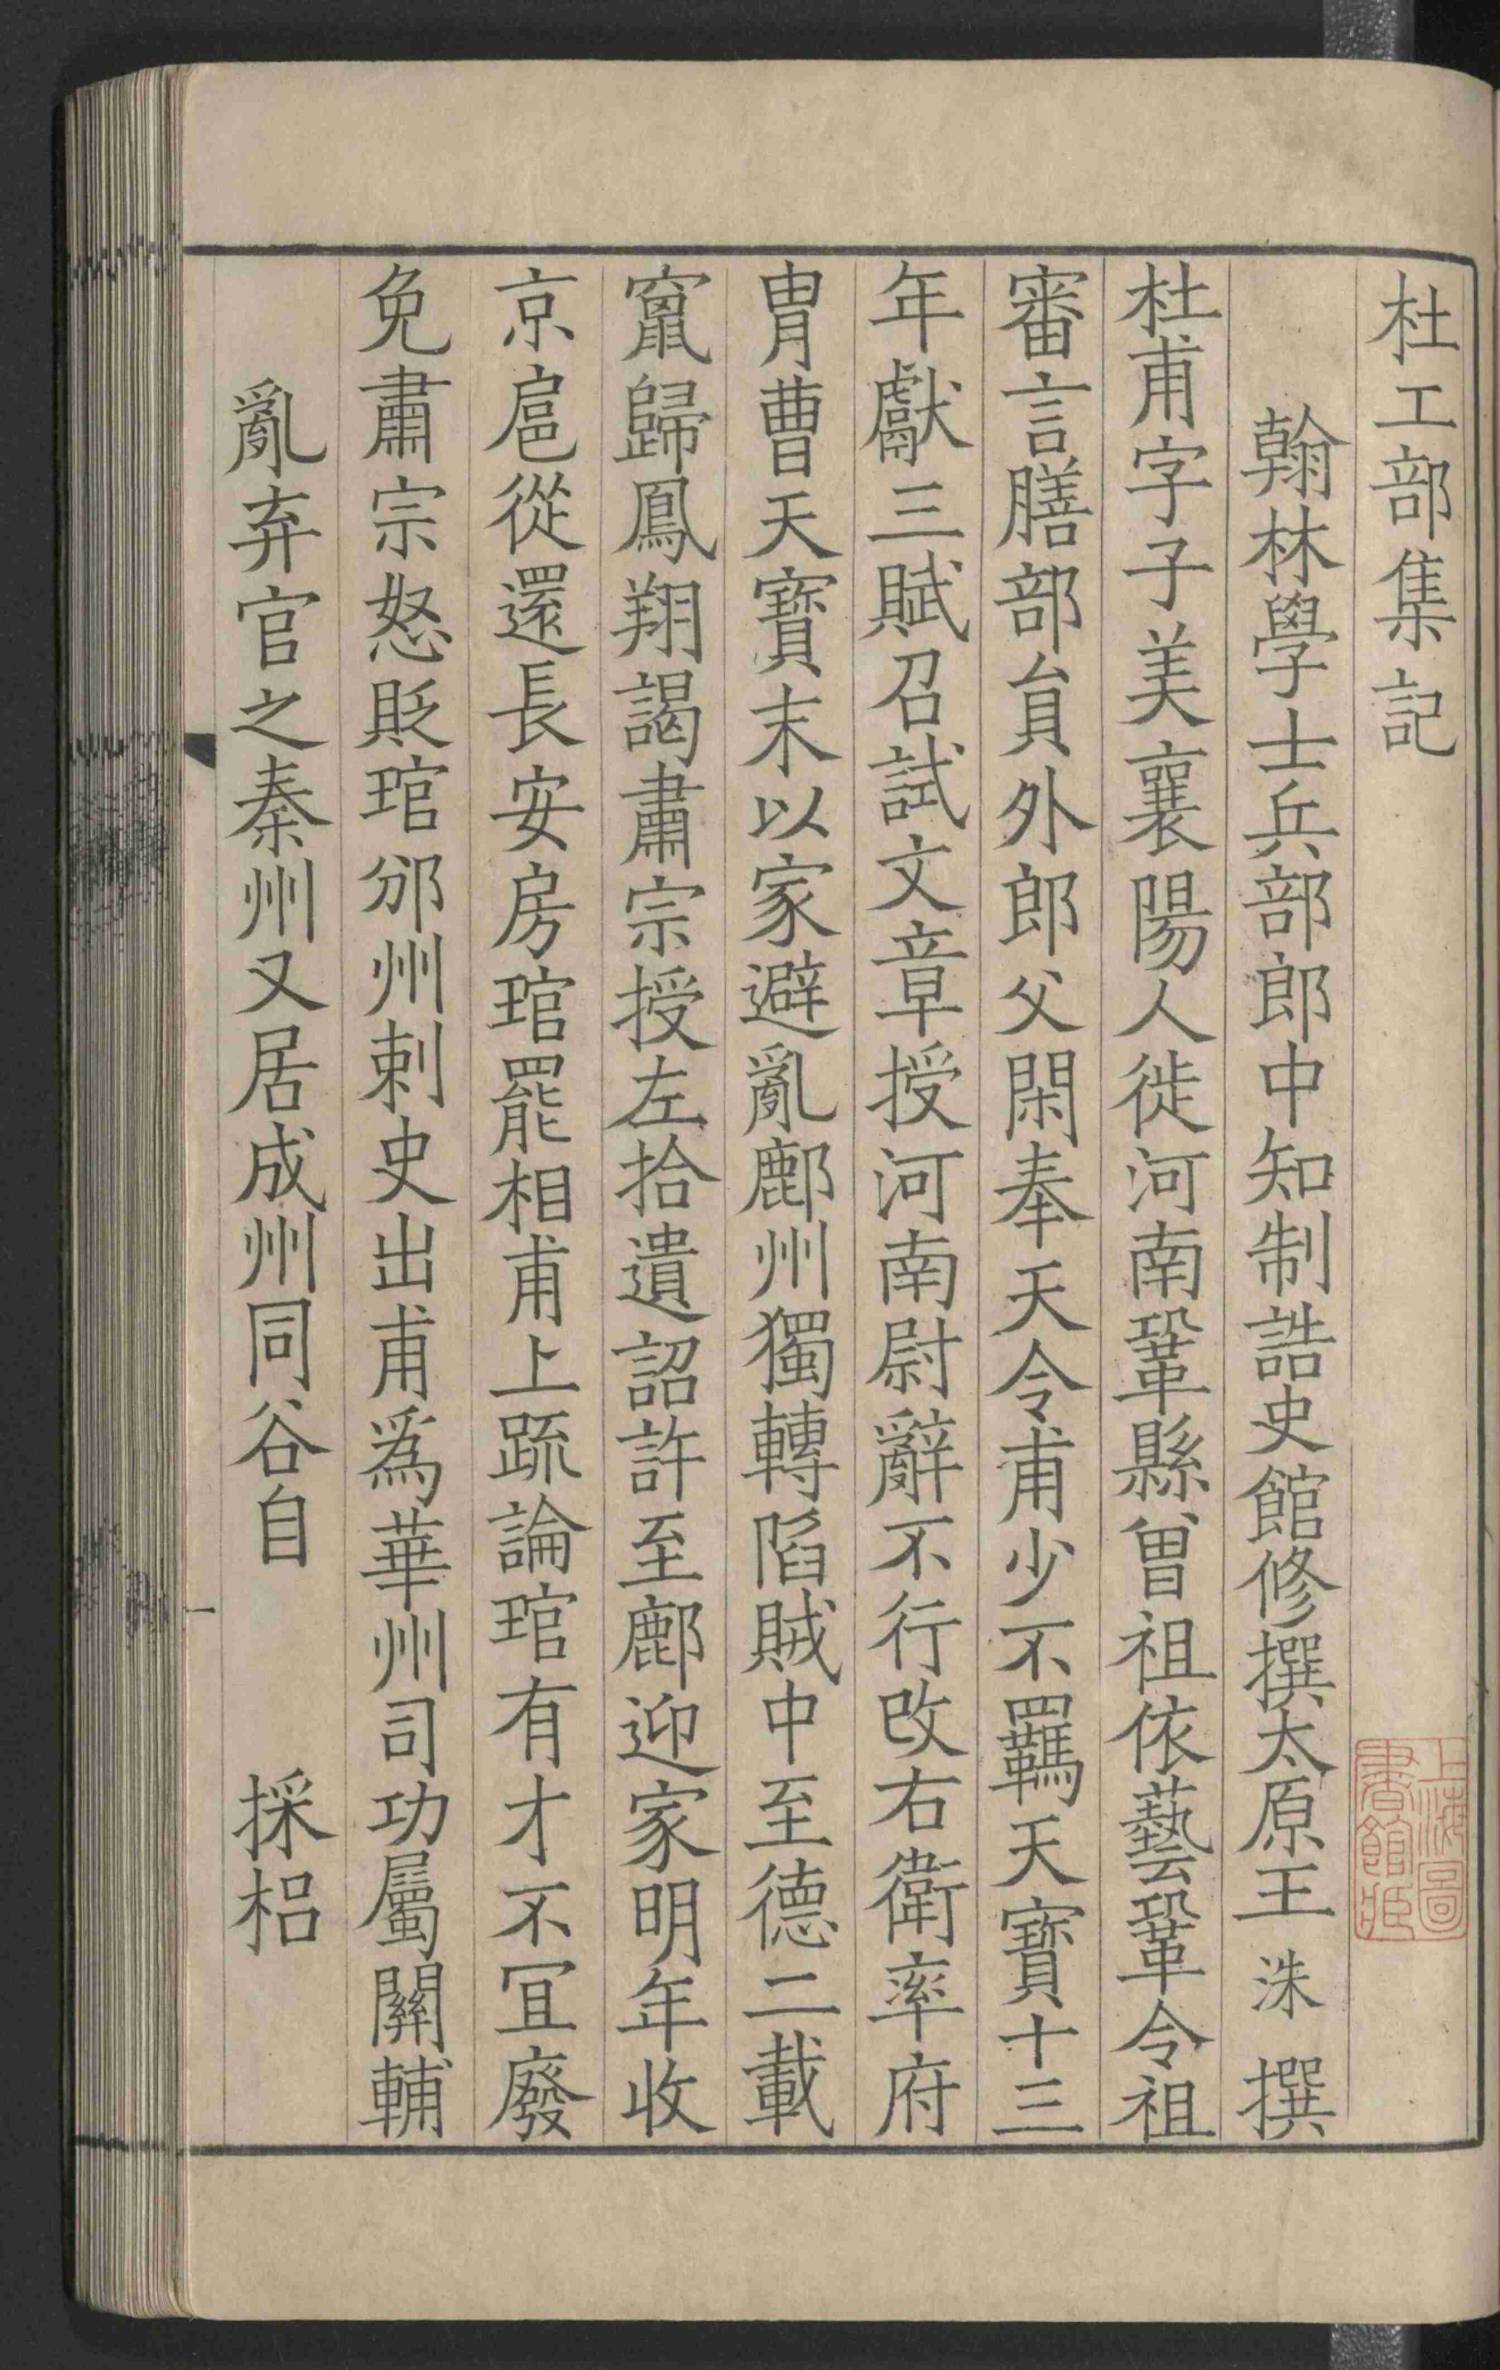 杜工部集記
翰林學士兵部郎中知制誥史館修撰太原王洙撰
杜甫字子美襄陽人徙河南鞏縣曾祖依藝鞏令祖
審言膳部員外郎父閑奉天令甫少不羈天寶十三
年獻三賦召試文章授河南尉辭不行改右衛率府
胄曹天寶末以家避亂鄜州獨轉陷賊中至德二載
竄歸鳳翔謁肅宗授左拾遺詔許至鄜迎家明年收
京扈從還長安房琯罷相甫上疏論琯有才不宜廢
免肅宗怒貶琯邠州刺史出甫為華州司功屬關輔
亂弃官之秦州又居成州同谷自 採梠
一
上海圖
書館藏